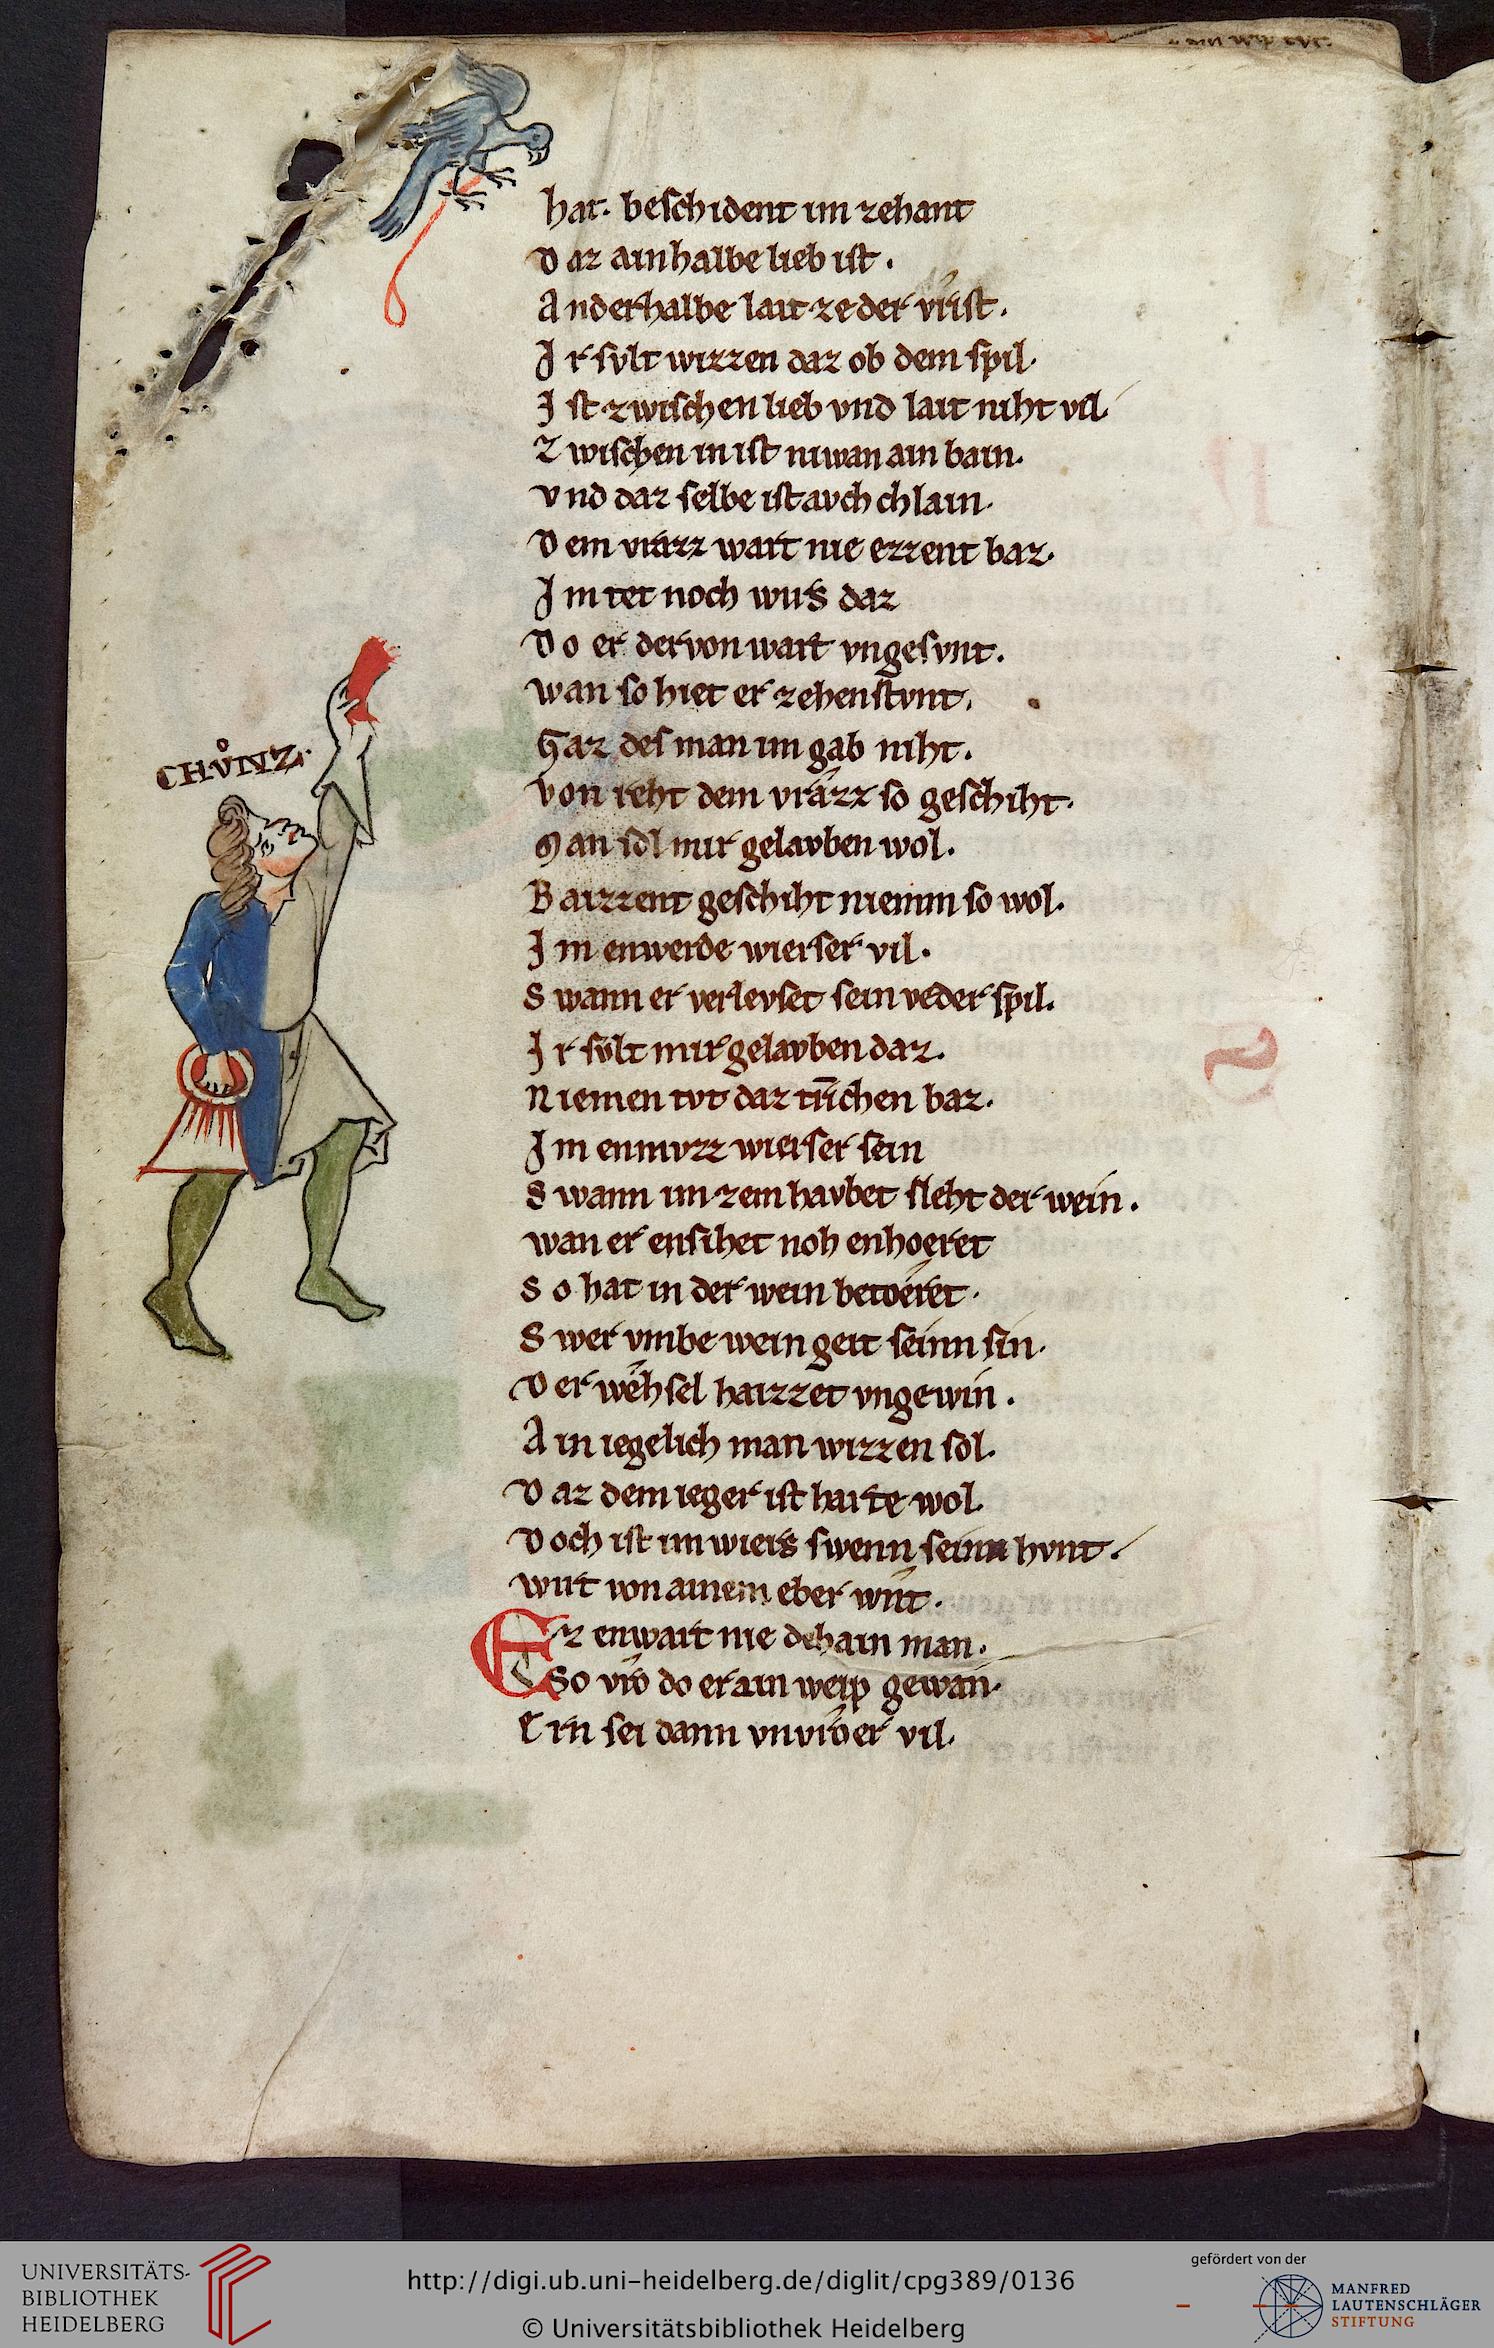 hat. beschident im zehant
Daz ainhalbe lieb ist.
Anderhalbe lait ze der vrist.
Ir svlt wizzen daz ob dem spil.
Ist zwischen lieb vnd lait niht vil.
Zwischen in ist niwan ain bain.
vnd daz selbe ist avch chlain.
Dem vrazz wart nie ezzent baz.
Im tet noch wirs daz
Do er dervon wart vngesvnt.
wan so hiet er zehenstvnt.
Gaz des man im gab niht.
von reht dem vrazz so geschiht.
Man sol mir gelavben wol.
Baizzent geschiht niemm so wol.
Im enwerde wierser vil.
Swann er verlevset sein vederspil.
CHvͦNZ.
Ir svlt mir gelavben daz.
Niemen tvt daz trīchen baz.
Im enmvzz wierser sein
Swann im zem havbet sleht der wein.
wan er ensihet noh enhoeret
So hat in der wein betoeret.
Swer vmbe wein geit seinn sin.
Der wehsel haizzet vngewin.
Ain iegelich man wizzen sol.
Daz dem ieger ist harte wol.
Doch ist im wiers swenn seinn hvnt.
wirt von ainem eber wnt.
Ez enwart nie dehain man.
So vro do er ain weip gewan.
Ern sei dann vnvroer vil.
UNIVERSITÄTS-
BIBLIOTHEK
HEIDELBERG
http://digi.ub.uni-heidelberg.de/diglit/cpg389/0136
© Universitätsbibliothek Heidelberg
gefördert von der
MANFRED
LAUTENSCHLÄGER
STIFTUNG